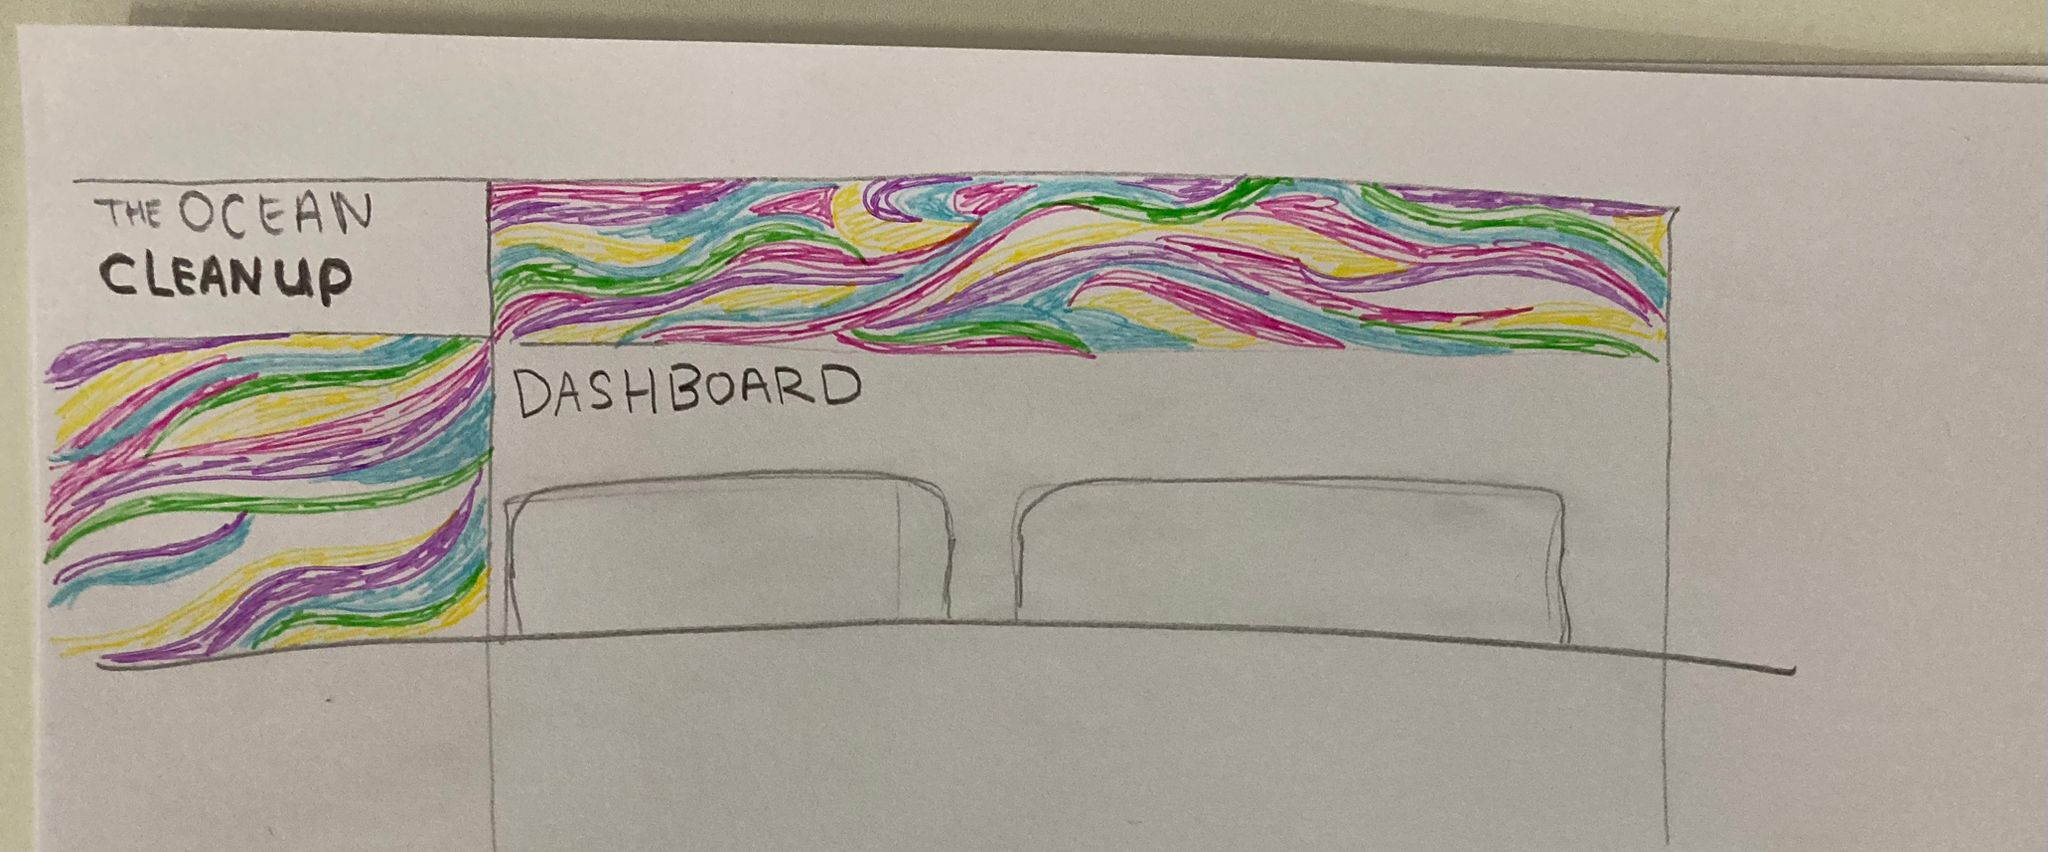 THE OCEAN
CLEANUP
DASHBOARD